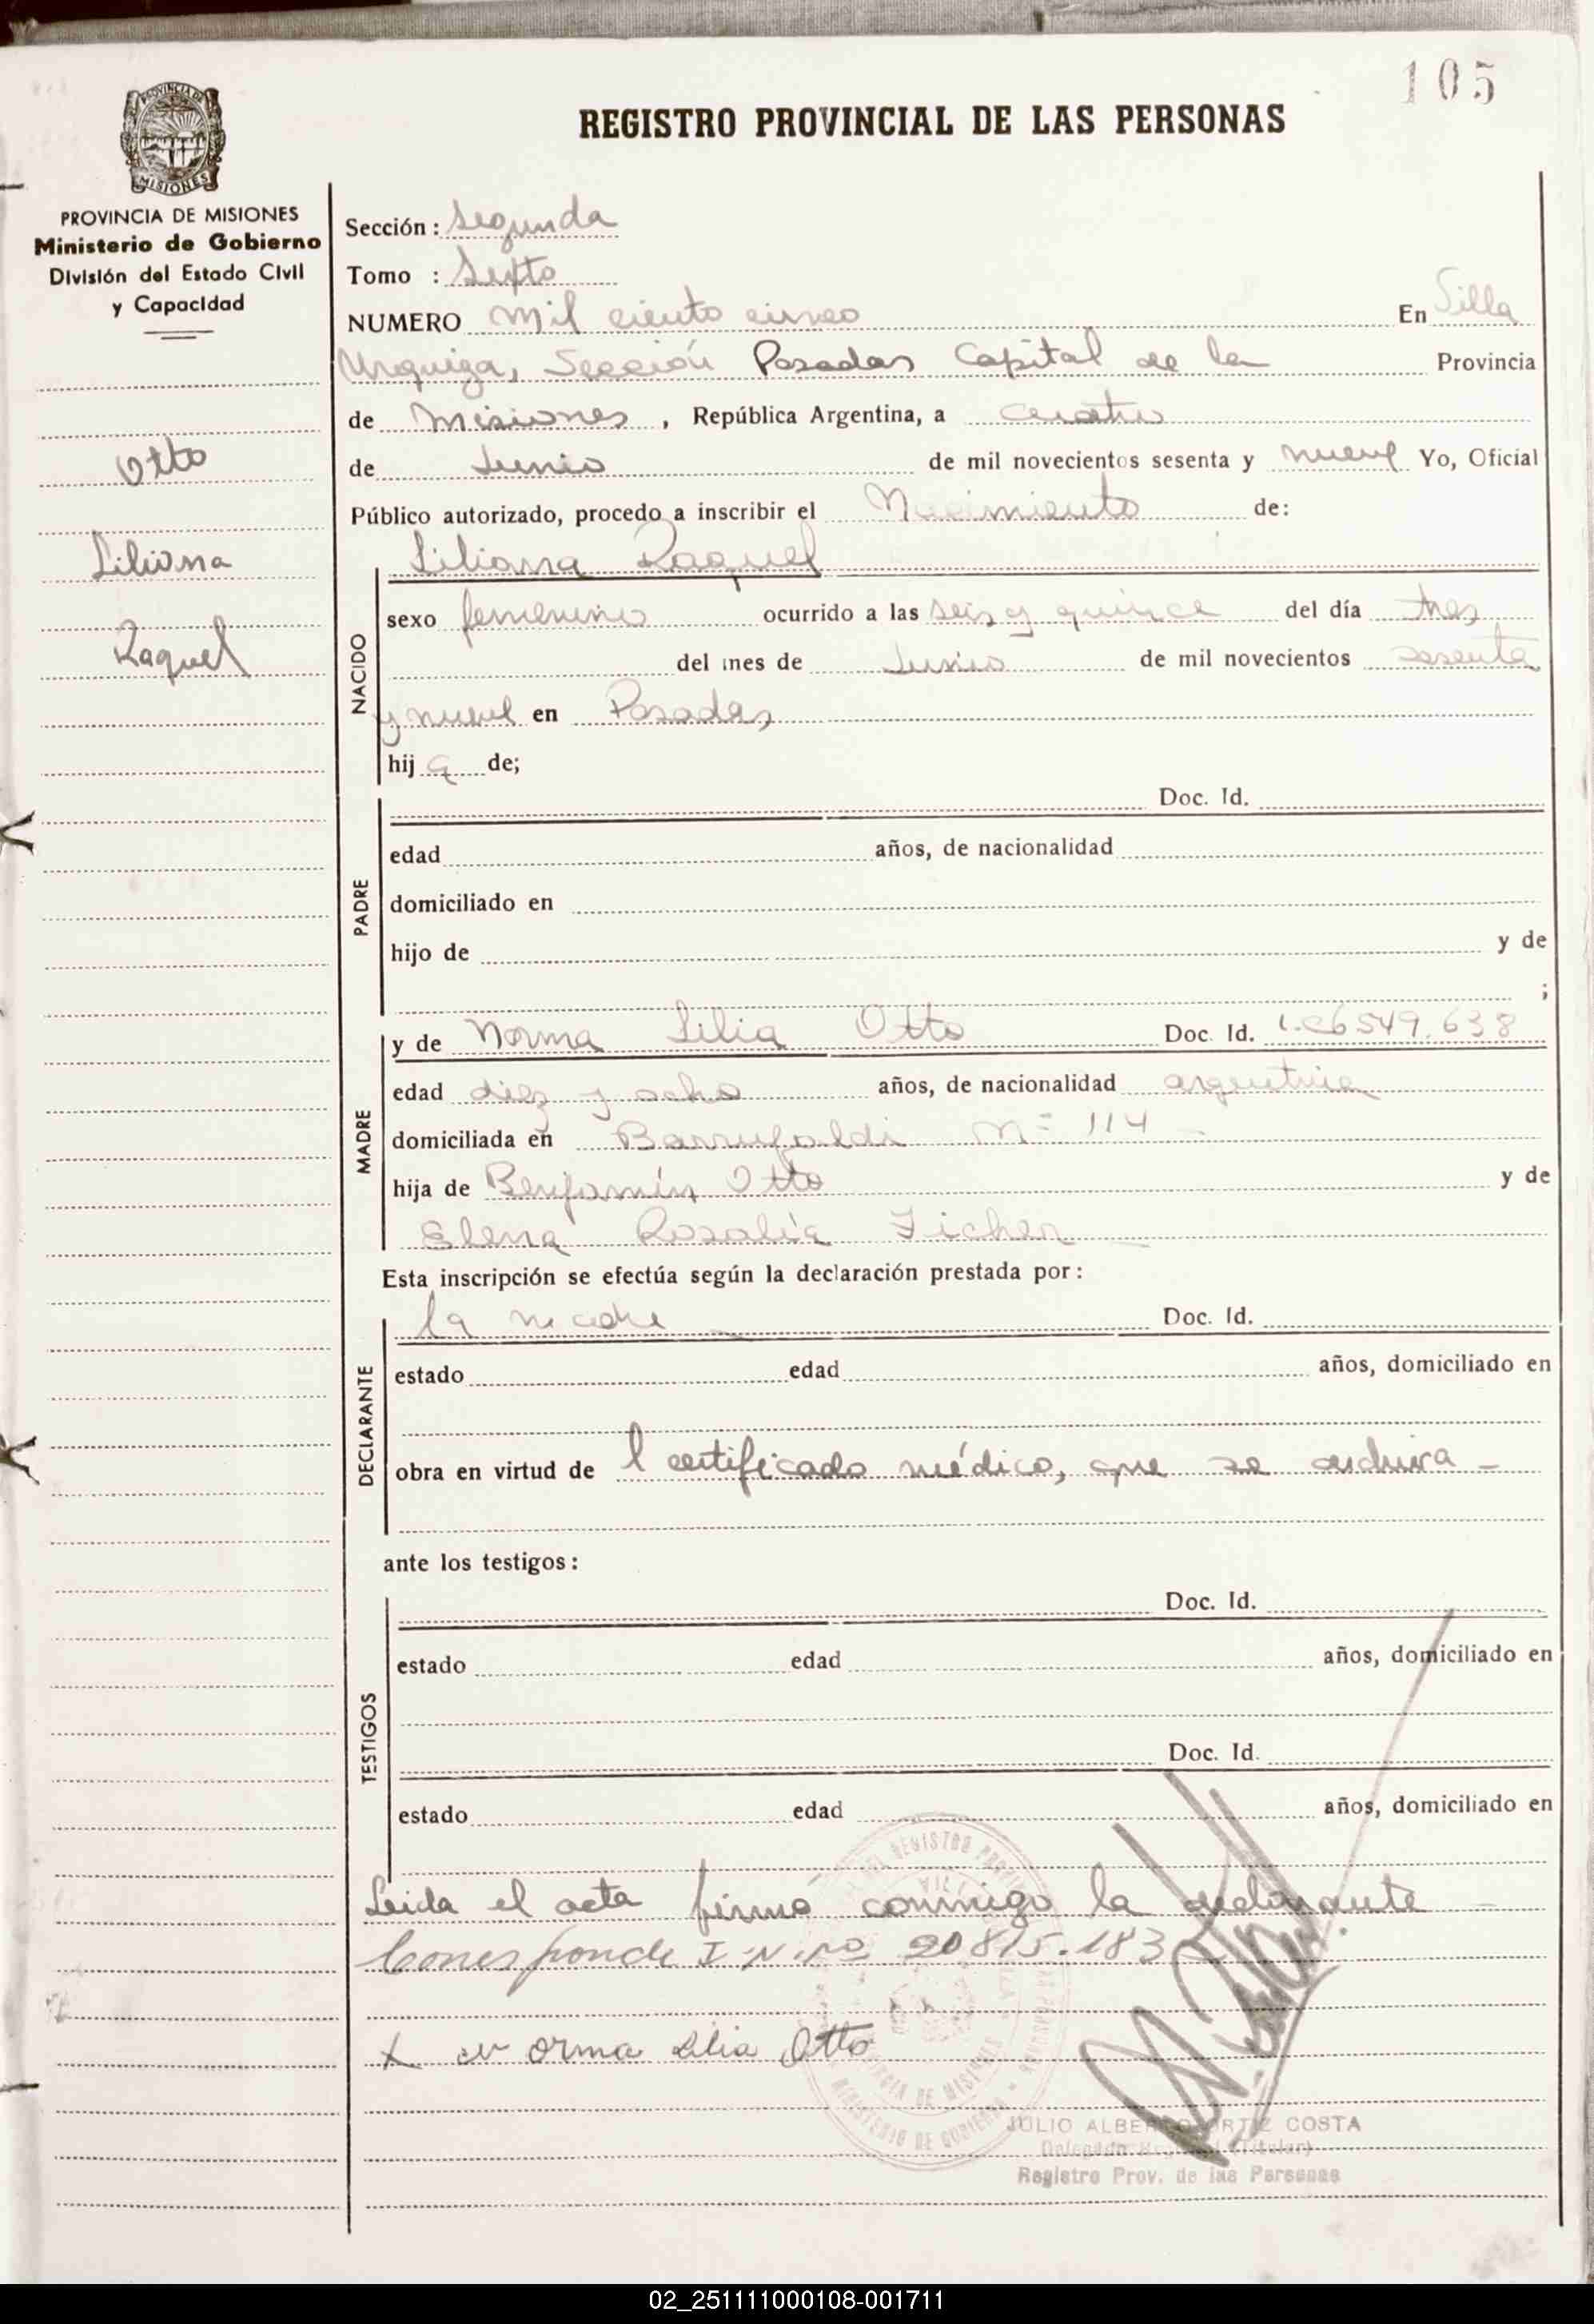 105
REGISTRO PROVINCIAL DE LAS PERSONAS
PROVINCIA DE MISIONES
Ministerio de Gobierno
División del Estado Civil
y Capacidad
Otto
Liliana
Raquel
Sección: Segunda
Tomo : Sexto
NUMERO Mil ciento cinco En Villa
Urquiza, Sección Posadas Capital de la Provincia
de Misiones, República Argentina, a cuatro
de Junio de mil novecientos sesenta y nueve Yo, Oficial
Público autorizado, procedo a inscribir el Nacimiento de:
Liliana Raquel
NACIDO
sexo femenino ocurrido a las seis y quince del día tres
del mes de Junio de mil novecientos sesenta
y nueve en Posadas
hija de;
PADRE
Doc. Id.
edad años, de nacionalidad
domiciliado en
hijo de y de
;
MADRE
y de Norma Lilia Otto Doc. Id. L.C 6549.638
edad diez y ocho años, de nacionalidad argentina
domiciliada en Barrufaldi Nº 114
hija de Benjamín Otto y de
Elena Rosalía Ficher
Esta inscripción se efectúa según la declaración prestada por:
DECLARANTE
la madre Doc. Id.
estado edad años, domiciliado en
obra en virtud de l certificado médico, que se archiva
ante los testigos:
TESTIGOS
Doc. Id.
estado edad años, domiciliado en
Doc. Id.
estado edad años, domiciliado en
Leida el acta firmó conmigo la declarante
Corresponde I.N.Nº 20.815.183
X Norma Lilia Otto
JULIO ALBERTO ORTIZ COSTA
Delegado Regional (Titular)
Registro Prov. de las Personas
02_251111000108-001711